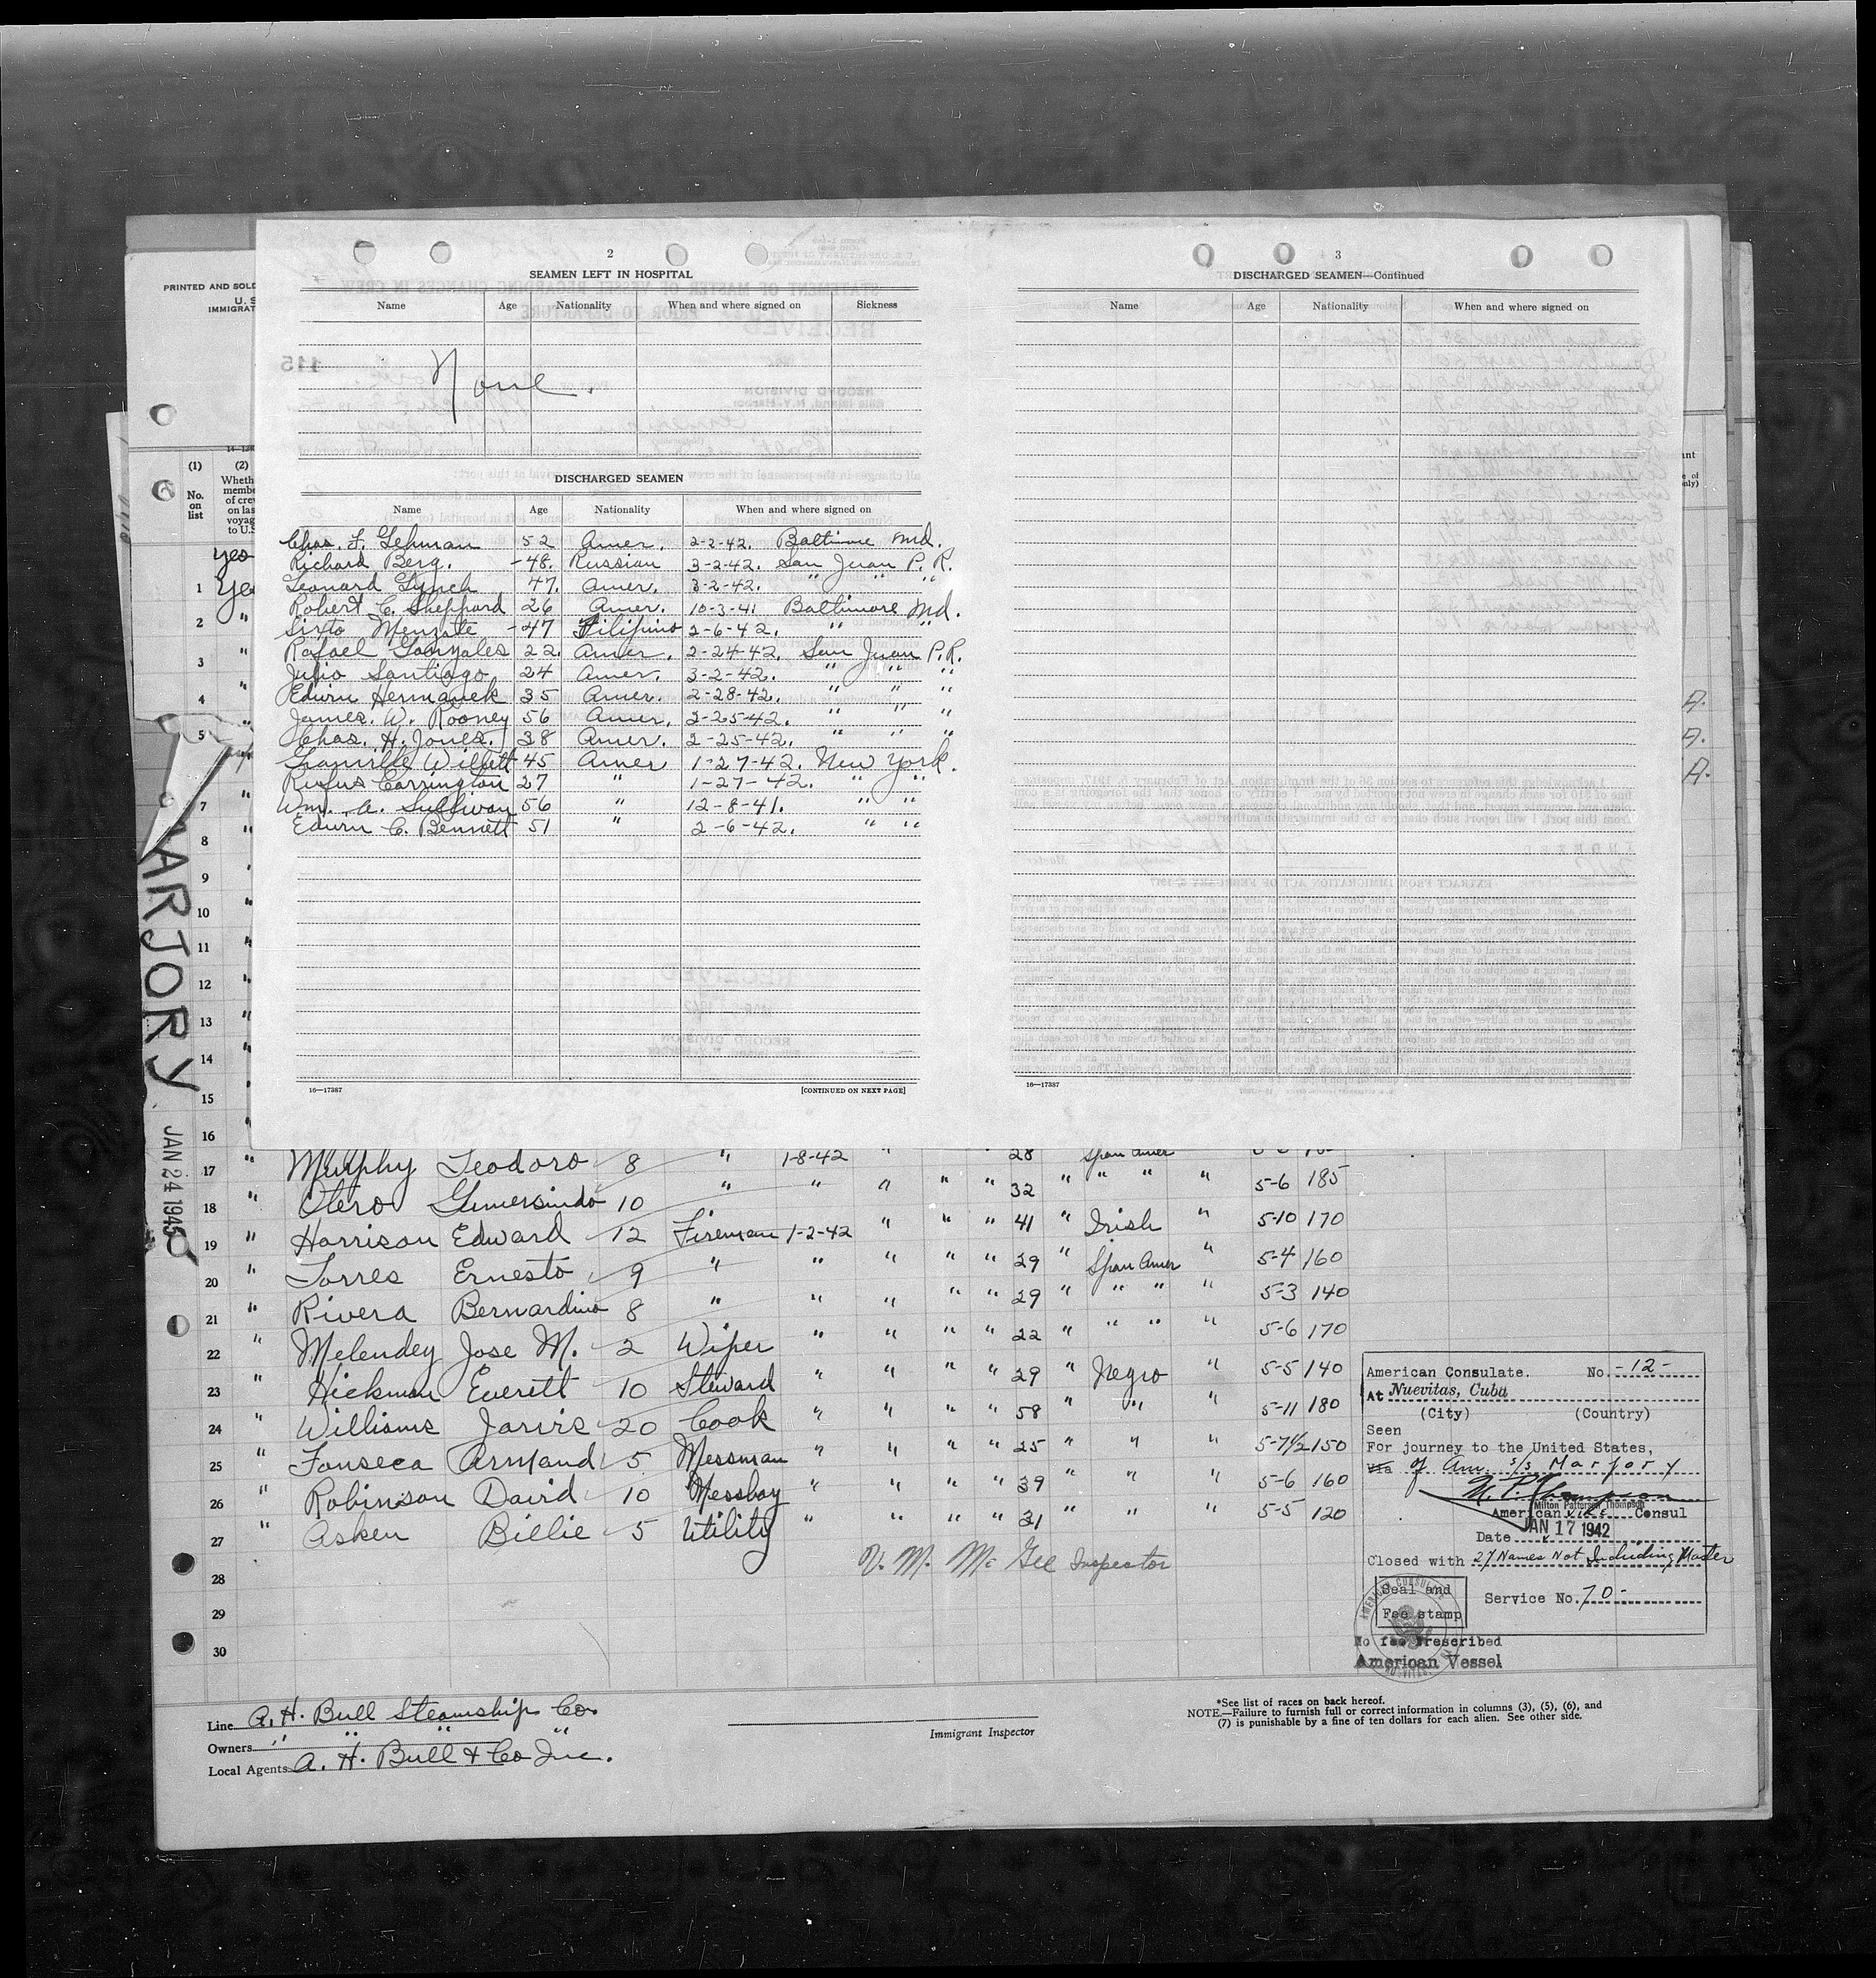 2
SEAMEN LEFT IN HOSPITAL
Name Age Nationality When and where signed on Sickness
None.
DISCHARGED SEAMEN
Name Age Nationality When and where signed on
Chas. F. Lehman 52 Amer. 2-2-42. Baltimore Md.
Richard Berg. -48. Russian 3-2-42. San Juan P.R.
Leonard Lynch 47. Amer. 3-2-42. " " "
Robert C. Sheppard 26 Amer. 10-3-41 Baltimore Md.
Sixto Menzate -47 Filipino 2-6-42. " "
Rafael Gonzales 22. Amer. 2-24-42. San Juan P.R.
Julio Santiago 24 Amer. 3-2-42. " " "
Edwin Hermanek 35 Amer. 2-28-42. " " "
James. W. Rooney 56 Amer. 2-25-42. " " "
Chas. H. Jones. 38 Amer. 2-25-42. " " "
Granville Willett 45 Amer 1-27-42. New York.
Rufus Carrington 27 " 1-27-42. " "
Wm. A. Sullivan 56 " 12-8-41. " "
Edwin C. Bennett 51 " 2-6-42. " "
16—17387 [CONTINUED ON NEXT PAGE]
3
DISCHARGED SEAMEN—Continued
Name Age Nationality When and where signed on
16—17387
PRINTED AND SOLD
U. S
IMMIGRAT
(1) (2)
No. on list
Wheth
membe
of crew
on las
voyag
to U.S
yes
1 Yes
2 "
3 "
4 "
5 "
7 "
8
9
10
11
12
13
14
15
16
MARJORY
JAN 24 1945
17 " Murphy Teodoro 8 " 1-8-42 " 28 Span Amer
18 " Otero Gumersindo 10 " " " " " 32 " " " " 5-6 185
19 " Harrison Edward 12 Fireman 1-2-42 " " " 41 " Irish " 5-10 170
20 " Torres Ernesto 9 " " " " " 29 " Span Amer " 5-4 160
21 " Rivera Bernardino 8 " " " " " 29 " " " " 5-3 140
22 " Melendey Jose M. 2 Wiper " " " " 22 " " " " 5-6 170
23 " Hickman Everett 10 Steward " " " " 29 " Negro " 5-5 140
24 " Williams Jarvis 20 Cook " " " " 58 " " " 5-11 180
25 " Fonseca Armand 5 Messman " " " " 25 " " " 5-7½ 150
26 " Robinson David 10 Messboy " " " " 39 " " " 5-6 160
27 " Asken Billie 5 Utility " " " " 31 " " " 5-5 120
28
29
30
V. M. Mc Gee Inspector
American Consulate. No. -12-
At Nuevitas, Cuba
(City) (Country)
Seen
For journey to the United States,
Via of Am. s/s Marjory
Milton Patterson Thompson
American Vice Consul
Date JAN 17 1942
Closed with 27 Names Not Including Master
Seal and
Fee stamp
Service No. 70-
No fee Prescribed
American Vessel
Line A. H. Bull Steamship Co.
Owners " " " "
Local Agents A. H. Bull & Co Inc.
Immigrant Inspector
*See list of races on back hereof.
NOTE.—Failure to furnish full or correct information in columns (3), (5), (6), and
(7) is punishable by a fine of ten dollars for each alien. See other side.